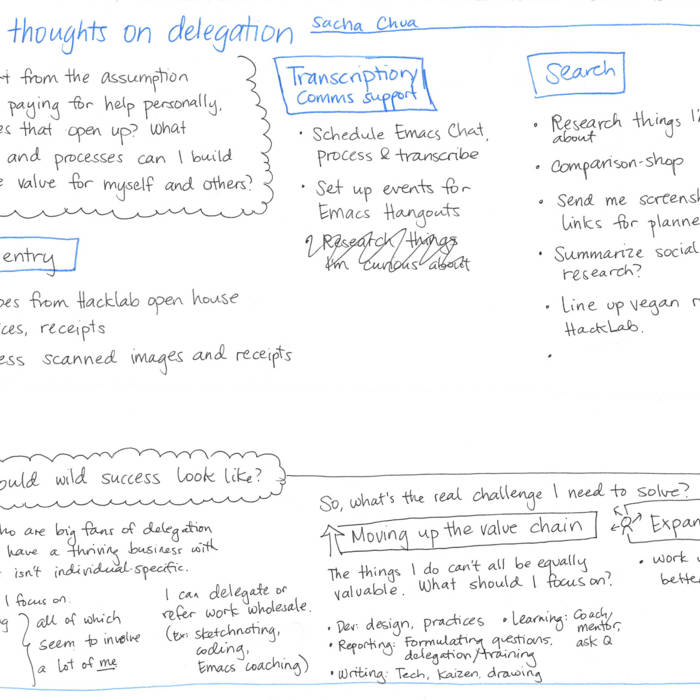 thoughts on delegation Sacha Chua
from the assumption
paying for help personally,
that open up? What
and processes can I build
value for myself and others?
Transcription/
Comms support
• Schedule Emacs Chat,
process & transcribe
• Set up events for
Emacs Hangouts
Research things
I'm curious about
Search
• Research things
about
• Comparison-shop
• Send me
links for
• Summarize social
research?
• Line up vegan
HackLab.
•
entry
from Hacklab open house
receipts
scanned images and receipts
wild success look like?
are big fans of delegation
have a thriving business with
isn't individual-specific.
I focus on.
all of which
seem to involve
a lot of me
I can delegate or
refer work wholesale.
(Ex: sketchnoting,
coding,
Emacs coaching)
So, what's the real challenge I need to solve?
Moving up the value chain
The things I do can't all be equally
valuable. What should I focus on?
• Dev: design, practices
• Reporting: Formulating questions,
delegation/training
• Writing: Tech, Kaizen, drawing
• Learning: Coach/
mentor,
ask Q
• Work